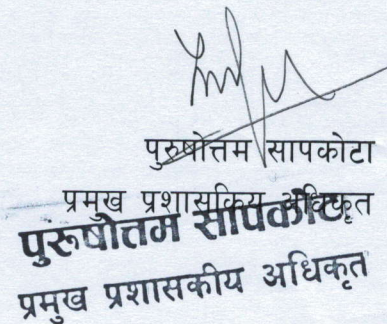 पुरुषोत्तम सापकोटा
प्रमुख प्रशासकिय अधिकृत
पुरूषोत्तम सापकोटा
प्रमुख प्रशासकीय अधिकृत